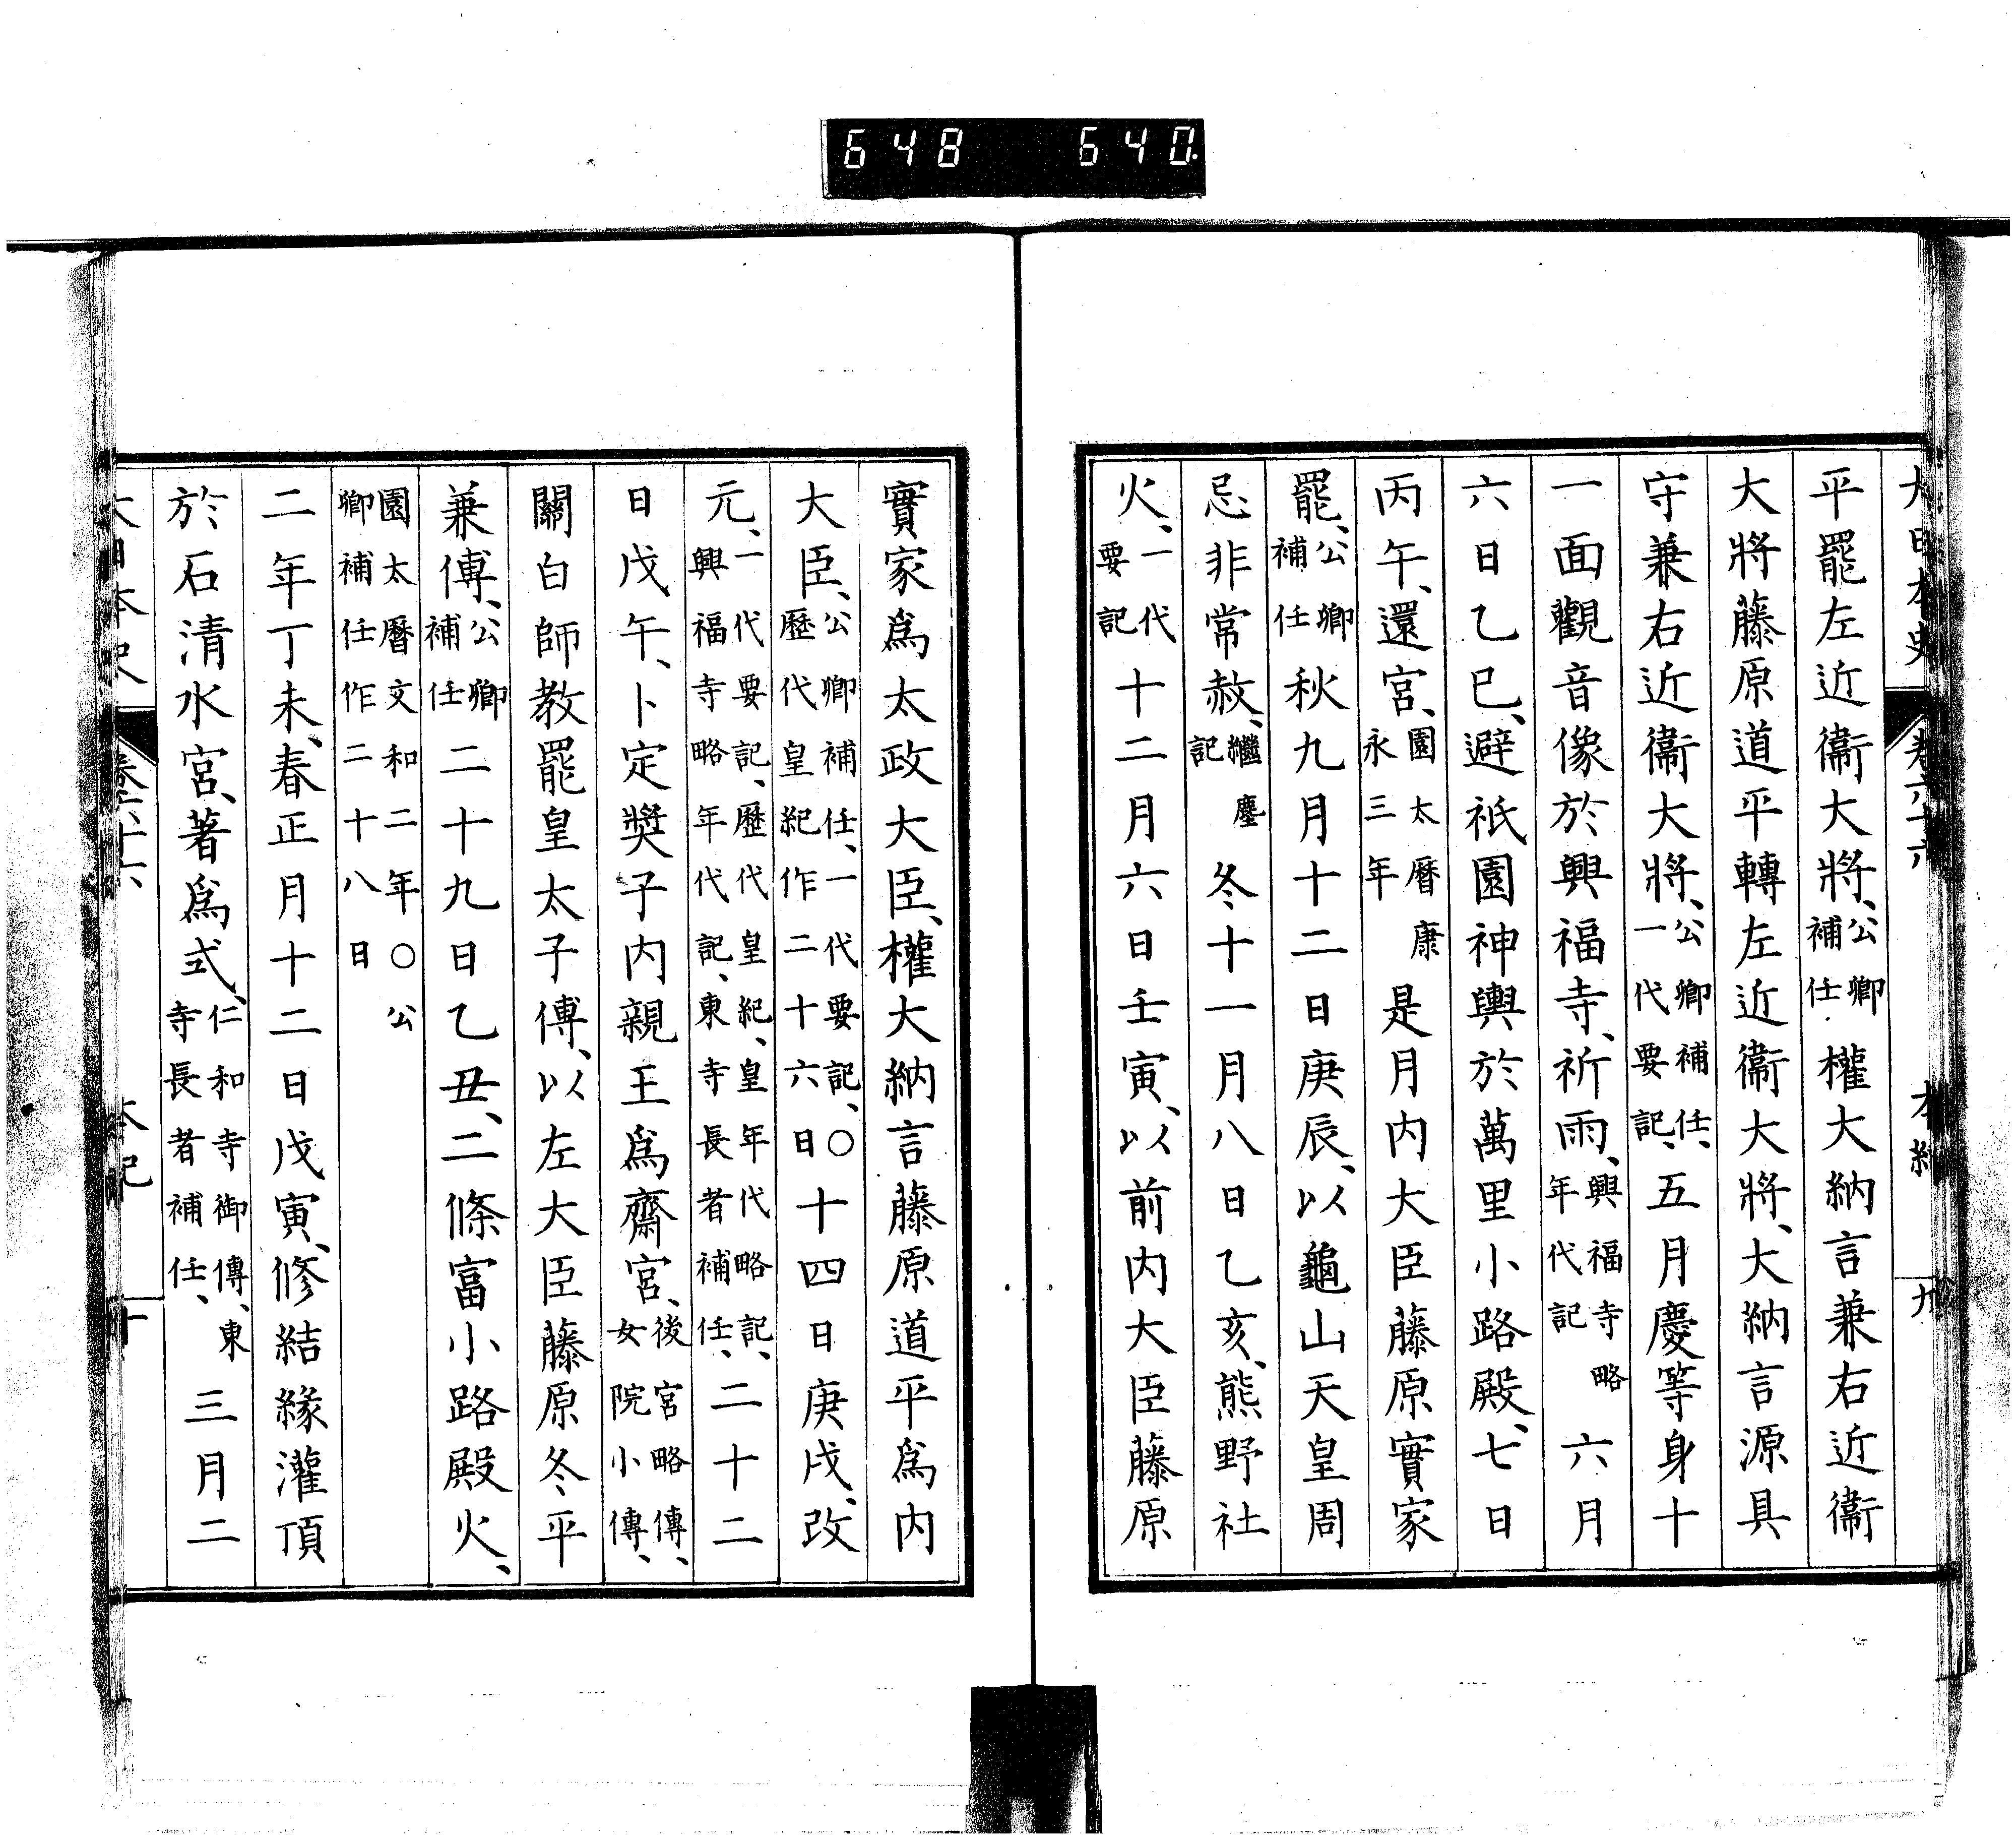 648 640.
大日本史 卷六十六 本紀 九
平罷左近衞大將、公卿補任權大納言兼右近衞
大將藤原道平轉左近衞大將、大納言源具
守兼右近衞大將、公卿補任、一代要記、五月慶等身十
一面觀音像於興福寺、祈雨、興福寺略年代記六月
六日乙巳、避祇園神輿於萬里小路殿、七日
丙午、還宮、園太曆康永三年是月内大臣藤原實家
罷、公卿補任秋九月十二日庚辰、以龜山天皇周
忌非常赦、繼塵記冬十一月八日乙亥、熊野社
火、一代要記十二月六日壬寅、以前内大臣藤原
實家爲太政大臣、權大納言藤原道平爲内
大臣、公卿補任、一代要記、〇歷代皇紀作二十六日十四日庚戌、改
元、一代要記、歷代皇紀、皇年代略記、興福寺略年代記、東寺長者補任、二十二
日戊午、卜定奬子内親王爲齋宮、後宮略傳、女院小傳、
關白師教罷皇太子傅、以左大臣藤原冬平
兼傅、公卿補任二十九日乙丑、二條富小路殿火、
園太曆文和二年〇公卿補任作二十八日
二年丁未、春正月十二日戊寅、修結緣灌頂
於石清水宮、著爲式、仁和寺御傳、東寺長者補任、三月二
大日本史 卷六十六 本紀 十